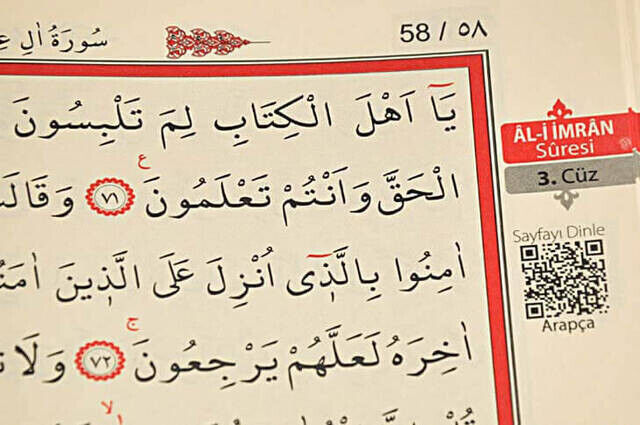 سُورَةُ اٰلِ
58 / ٥٨
يَٓا اَهْلَ الْكِتَابِ لِمَ تَلْبِسُونَ
الْحَقَّ وَاَنْتُمْ تَعْلَمُونَ ﴿٧١﴾ وَقَالَتْ
اٰمِنُوا بِالَّذ۪ٓي اُنْزِلَ عَلَى الَّذ۪ينَ
اٰخِرَهُ لَعَلَّهُمْ يَرْجِعُونَ ﴿٧٢﴾ وَلَا
ÂL-İ İMRÂN
Sûresi
3. Cüz
Sayfayı Dinle
Arapça